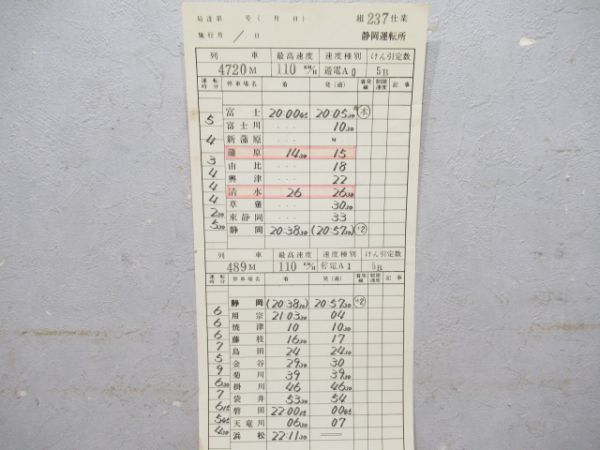 局達第 号 ( 月 日 ) 組 237 仕業
施行月 / 日 静岡運転所
列 車 最高速度 速度種別 けん引定数
4720M 110 KM/H 通電A0 5B
運転時分 停車場名 着 発(通) 着発線 制限速度 記事
富士 20.00 45 20.05 30
5 富士川 ... 10 30
4 新蒲原 ...
蒲原 14 30 15
3 由比 ... 18
4 興津 ... 22
4 清水 26 26 30
4 草薙 ... 30 30
2 30 東静岡 ... 33
5 30 静岡 20.38 30 (20.57 30) 2
列 車 最高速度 速度種別 けん引定数
489M 110 KM/H 停電A1 5B
運転時分 停車場名 着 発(通) 着発線 制限速度 記事
静岡 (20.38 30) 20.57 30 2
6 用宗 21.03 30 04
6 焼津 10 10 30
6 藤枝 16 30 17
7 島田 24 24 30
5 金谷 29 30 30
9 菊川 39 39 30
6 30 掛川 46 46 30
7 袋井 53 30 54
6 15 磐田 22.00 15 00 45
5 45 天竜川 06 30 07
4 30 浜松 22.11 30